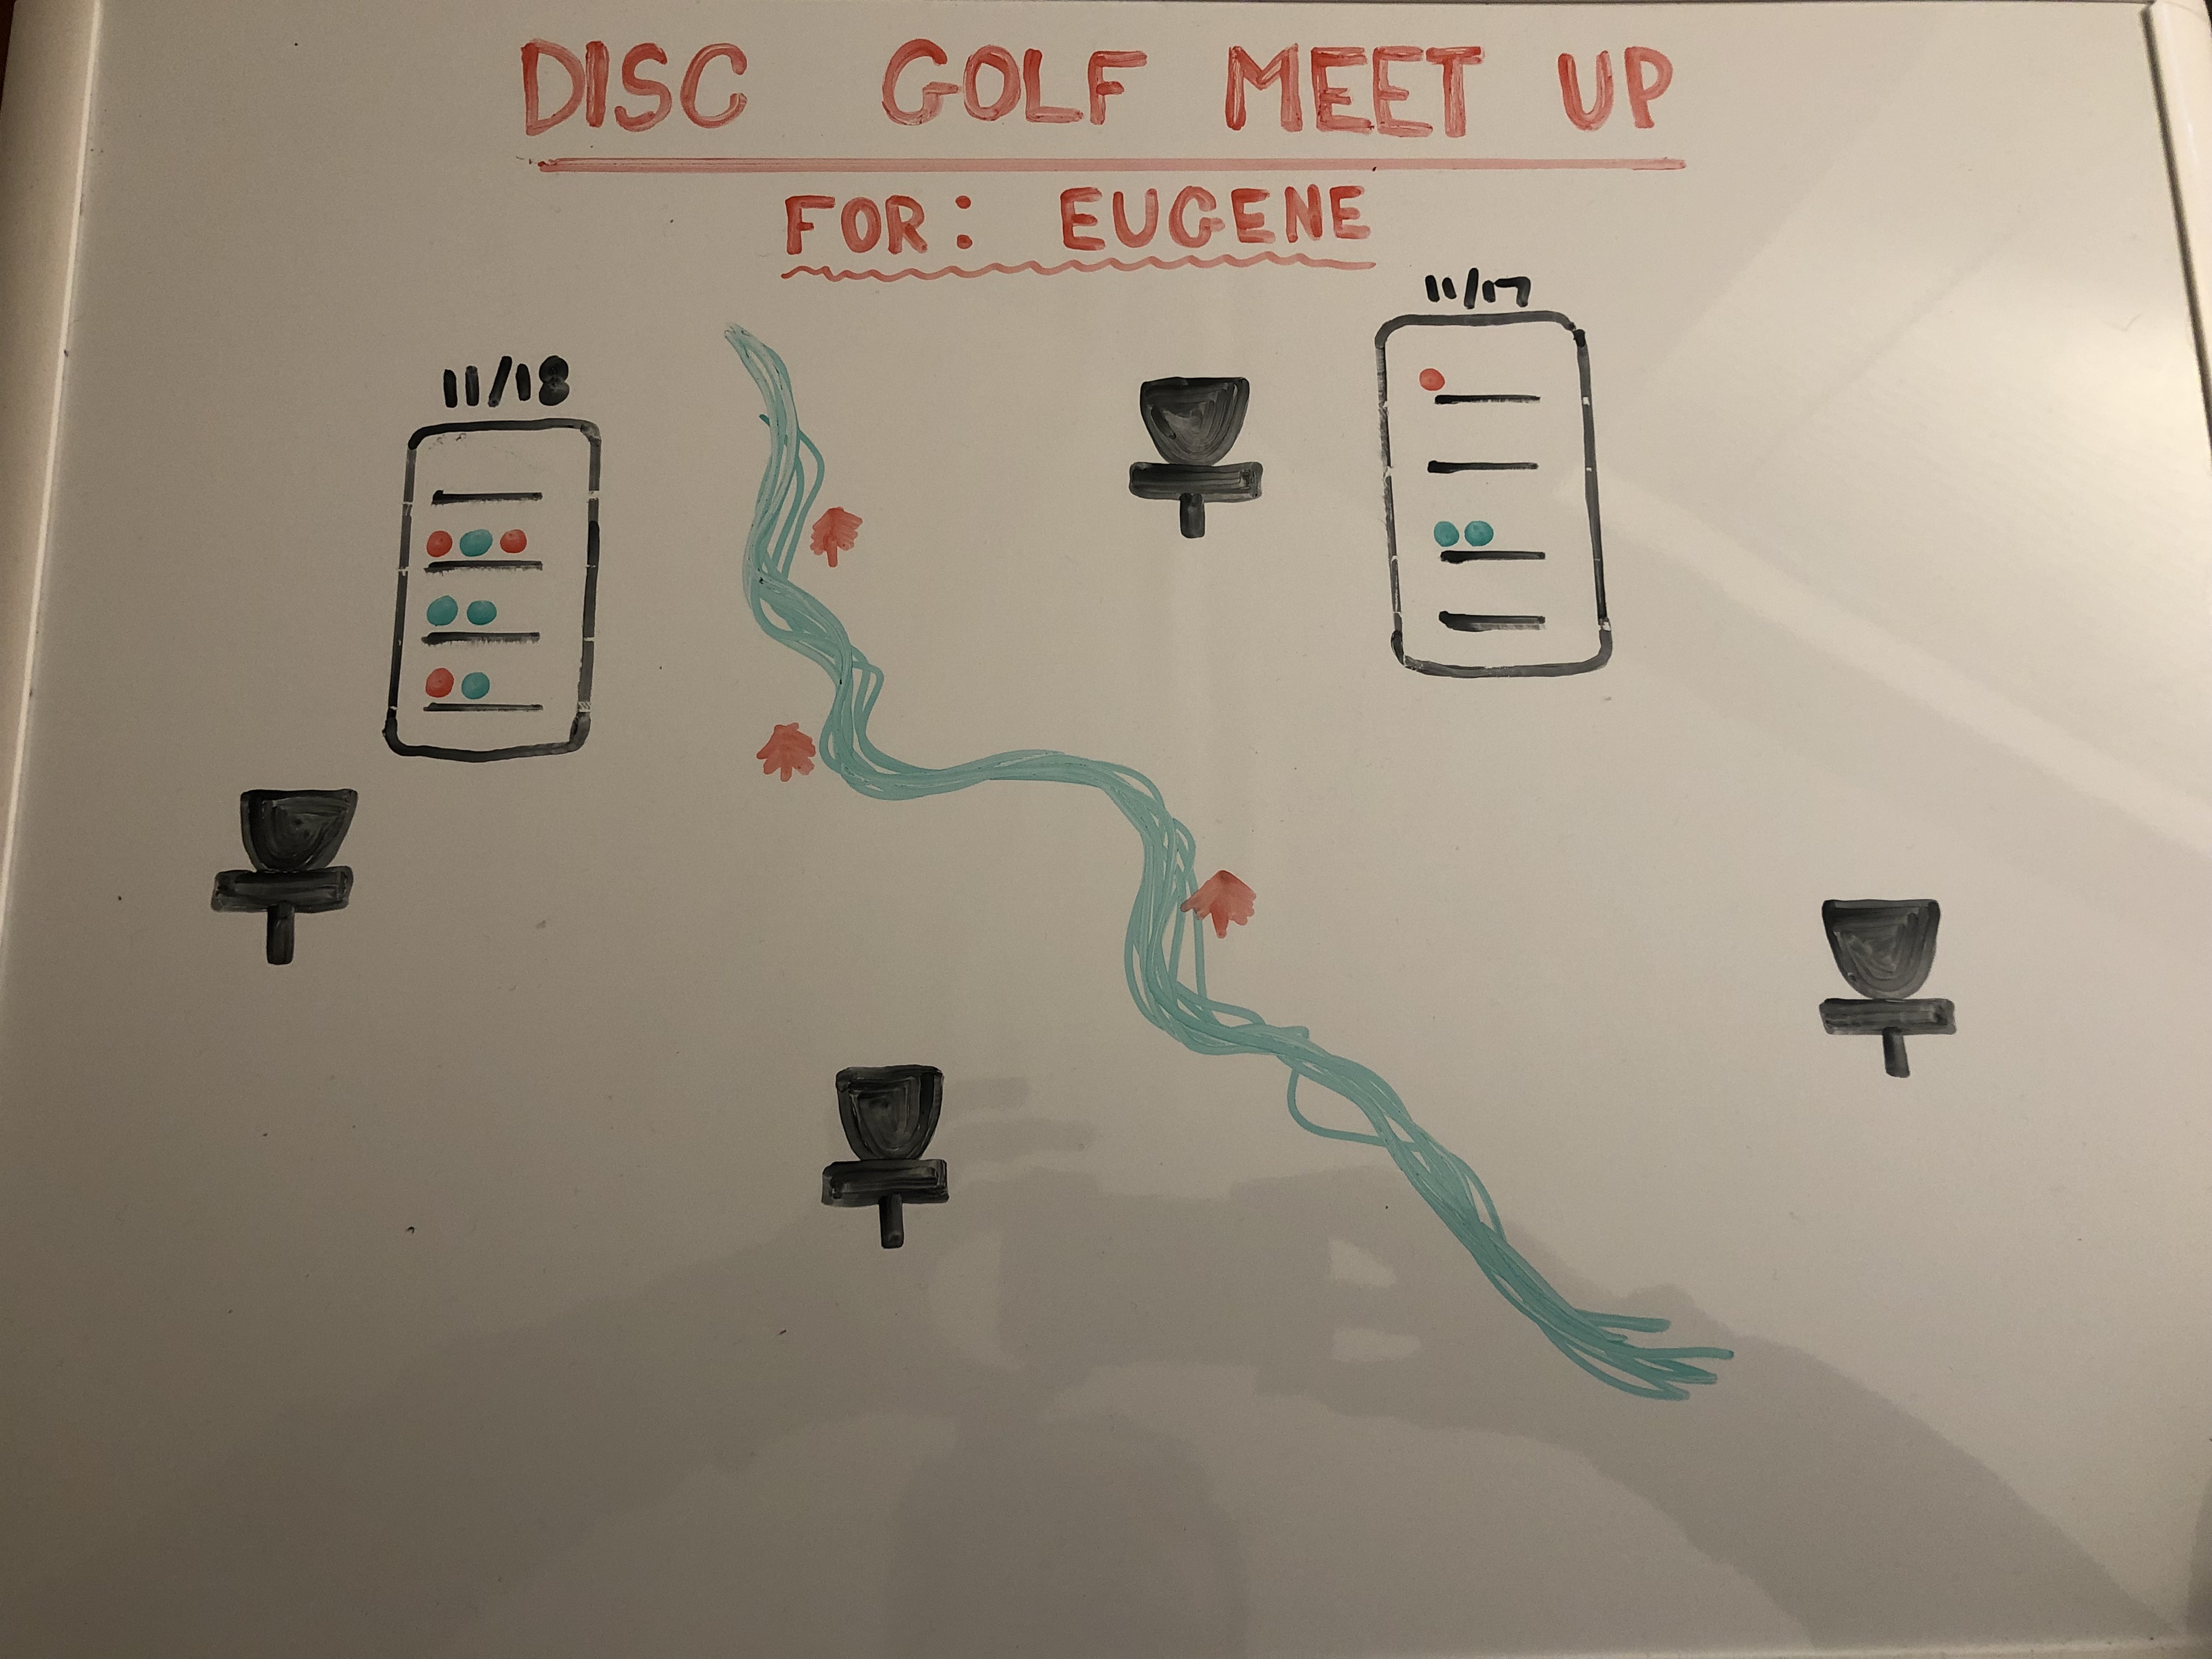 DISC GOLF MEET UP
FOR: EUGENE
11/17
11/18